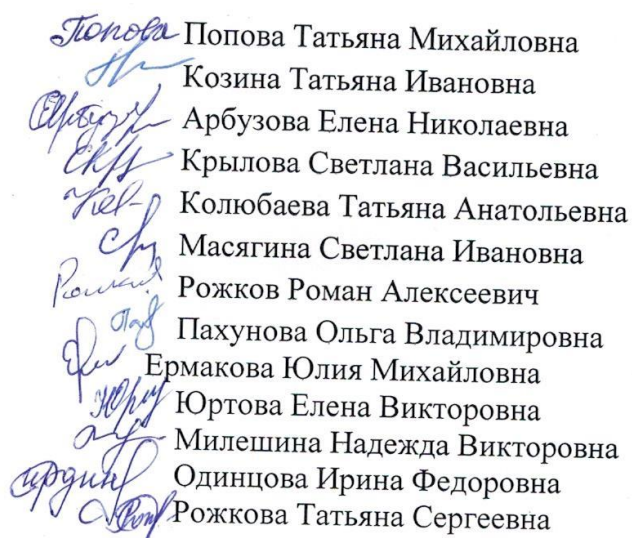 Попова Попова Татьяна Михайловна
Козина Татьяна Ивановна
Арбузова Елена Николаевна
Крылова Светлана Васильевна
Колюбаева Татьяна Анатольевна
Масягина Светлана Ивановна
Рожков Роман Алексеевич
Пахунова Ольга Владимировна
Ермакова Юлия Михайловна
Юртова Елена Викторовна
Милешина Надежда Викторовна
Одинцова Ирина Федоровна
Рожкова Татьяна Сергеевна